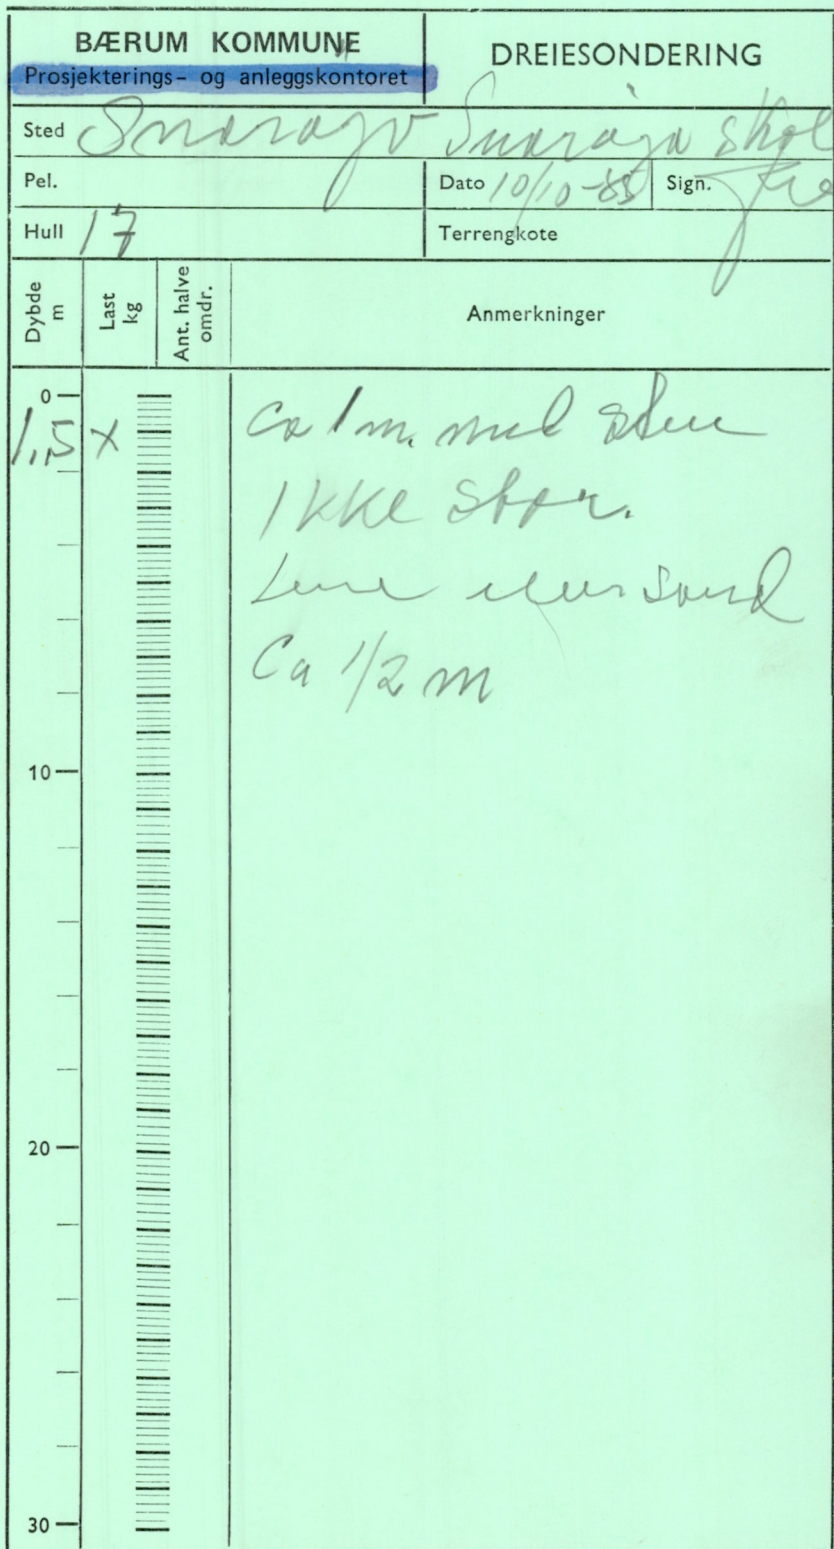 BÆRUM KOMMUNE
Prosjekterings- og anleggskontoret
DREIESONDERING
Sted Snarøya Snarøya skol
Pel.
Dato 10/10-85 Sign.
Hull 17
Terrengkote
Dybde m
Last kg
Ant. halve omdr.
Anmerkninger
0
1,5 x
ca 1 m. med sten
Ikke stor.
Leire eller sand
Ca 1/2 m
10
20
30